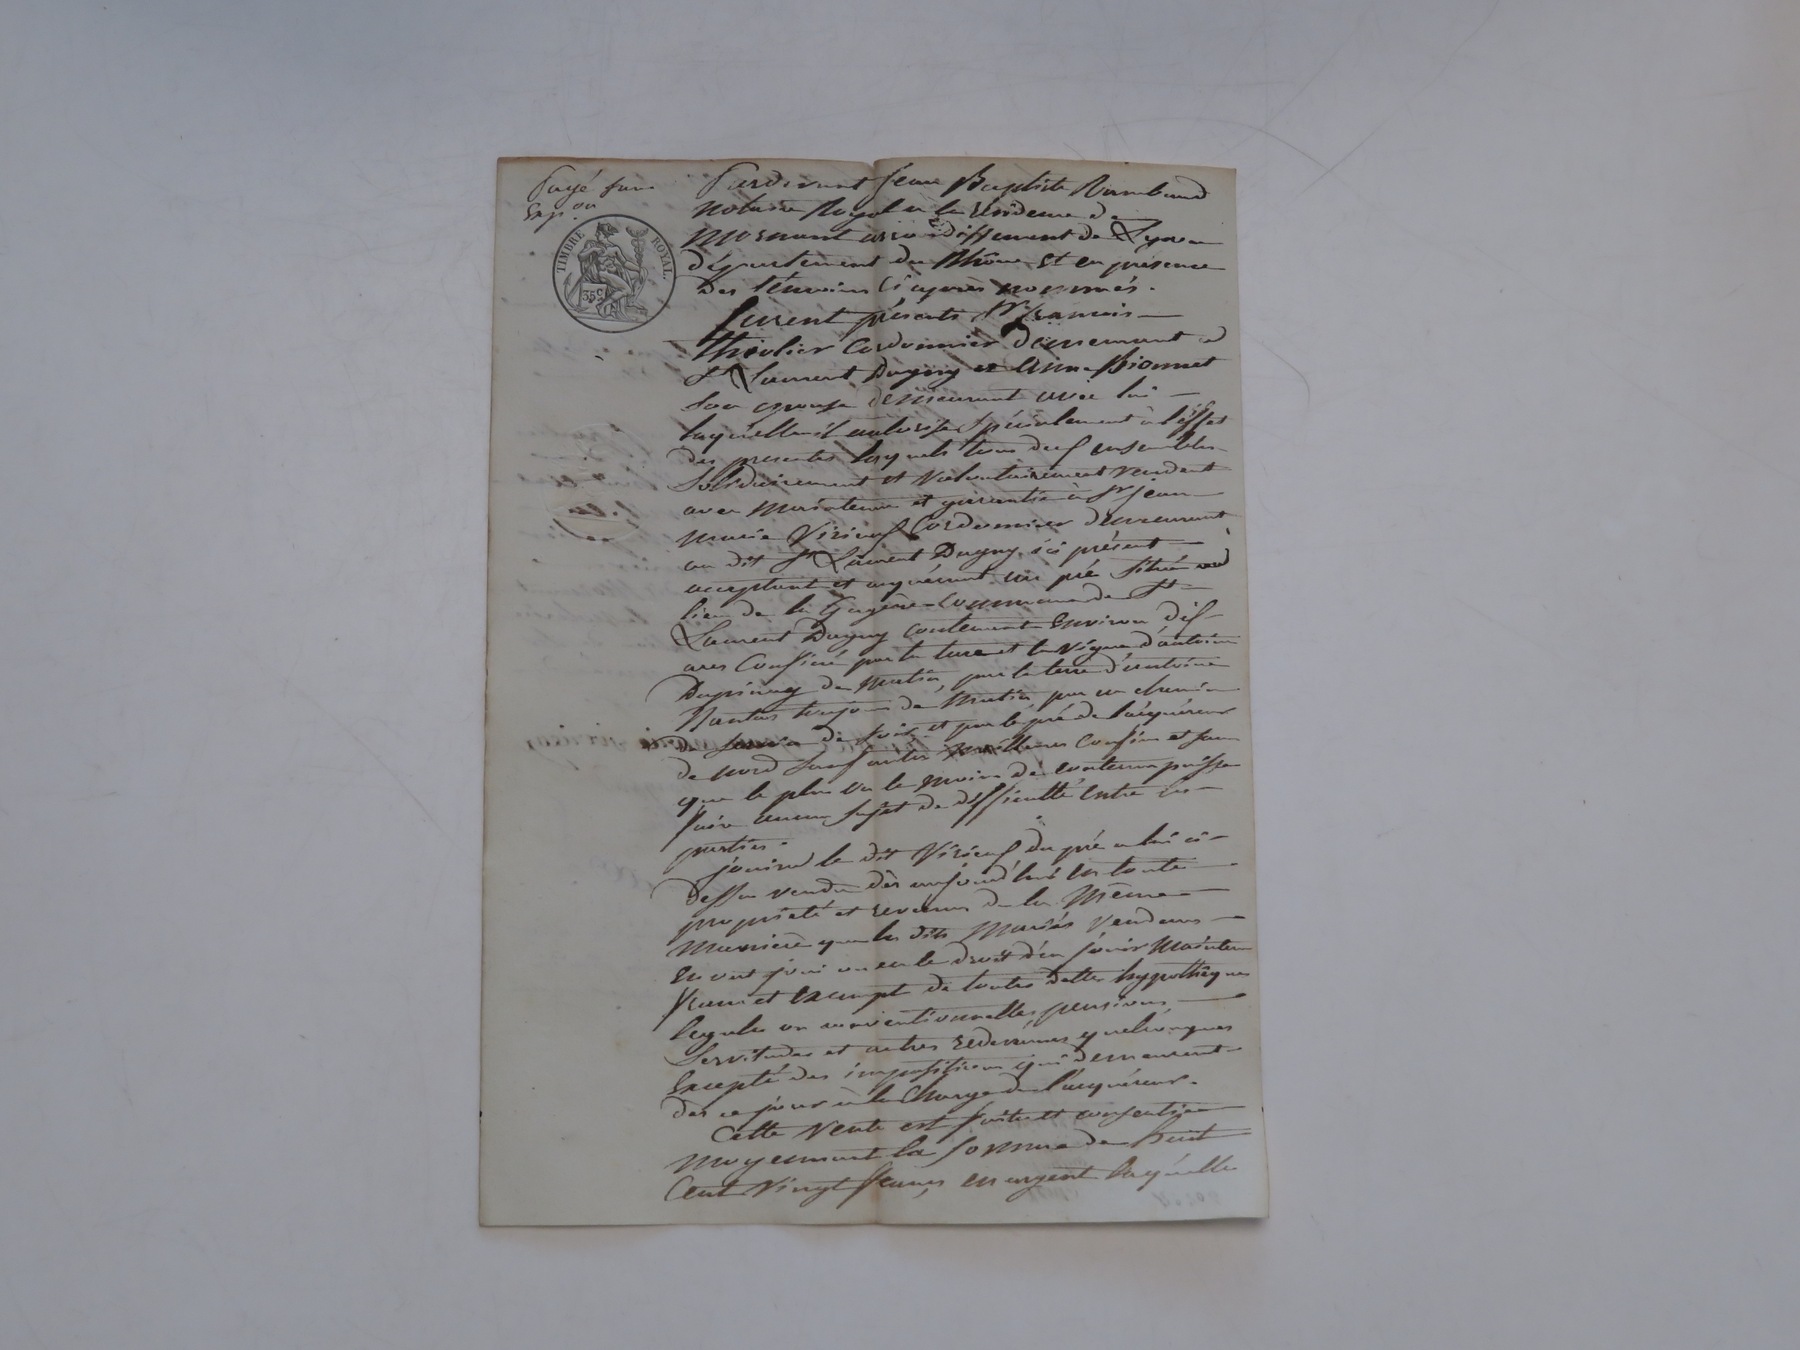 Payé pour
Exp.on
TIMBRE ROYAL.
35 C
Pardevant Jean Baptiste Rambaud
notaire Royal à la résidence de
Mornant arrondissement de Lyon
département du Rhône Et en présence
des témoins ci après nommés.
furent présents Sr francois
thiolier Cordonnier demeurant a
St Laurent Dagny et Anne Bionnet
Son epouse demeurant avec lui
laquelle il autorise spécialement à l'éffet
des presentes lesquels tous deux ensembles
Solidairement et Volontairement Vendent
avec maintenue et garantie à Sr jean
marie Virieux Cordonnier demeurant
au dit St Laurent Dagny ici présent
acceptant et acquérant un pré Situé au
lieu de la Commune de St
Laurent Dagny contenant Environ dix
ares Confiné par la terre et la Vigne d'antoine
de Matin, par la terre d'antoine
de Matin par un chemin
de de soir et par le pré de l'acquéreur
de nord Sauf autres meilleurs Confins et sans
que le plus ou le moins de contenu puisse
faire aucun Sujet de difficulté Entre les
parties.
jouira le dit Virieux du pré a lui ci
dessus vendu dès aujourd'hui En toute
propriété et revenus de la Même
Manière que les dits Mariés Vendeurs
En ont joui ou eu le droit d'en jouir Maintenu
franc et Exempt de toutes dettes hypothèques
legales ou conventionnelles, pensions
Servitudes et autres redevances quelconques
Excepté des impositions qui demeurent
des ce jour à la Charge de l'acquéreur.
Cette Vente est faite et consentie
moyennant la Somme de huit
Cent Vingt francs, en argent laquelle